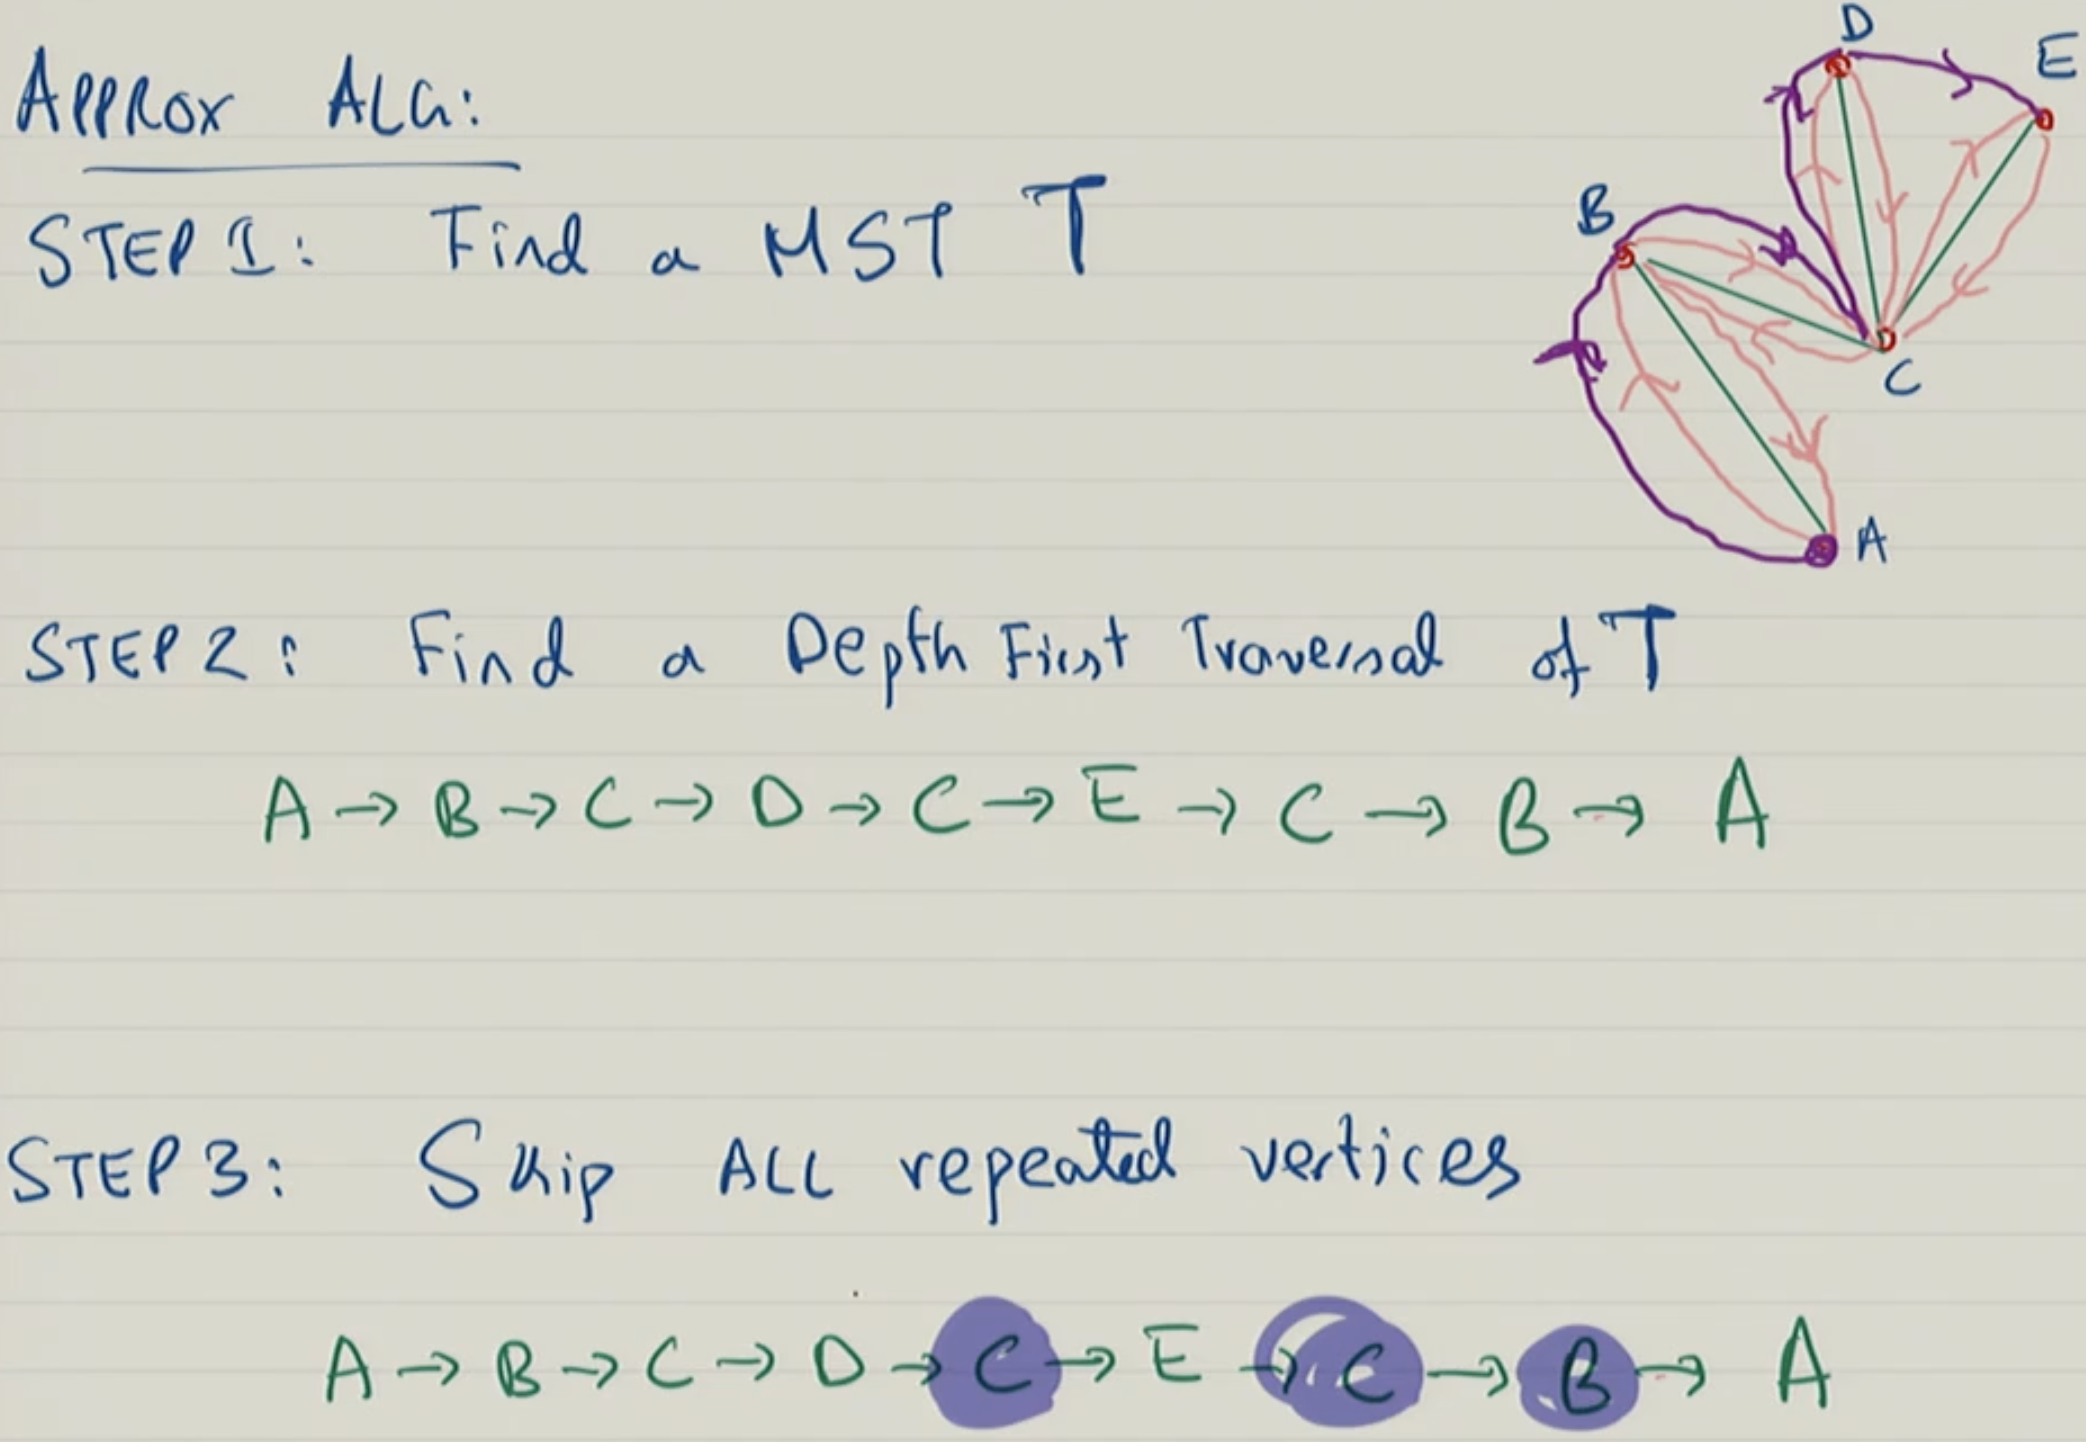 APPROX ALG:
STEP 1: Find a MST T
D
E
B
C
A
STEP 2: Find a Depth First Traversal of T
A → B → C → D → C → E → C → B → A
STEP 3: Skip ALL repeated vertices
A → B → C → D → C → E → C → B → A